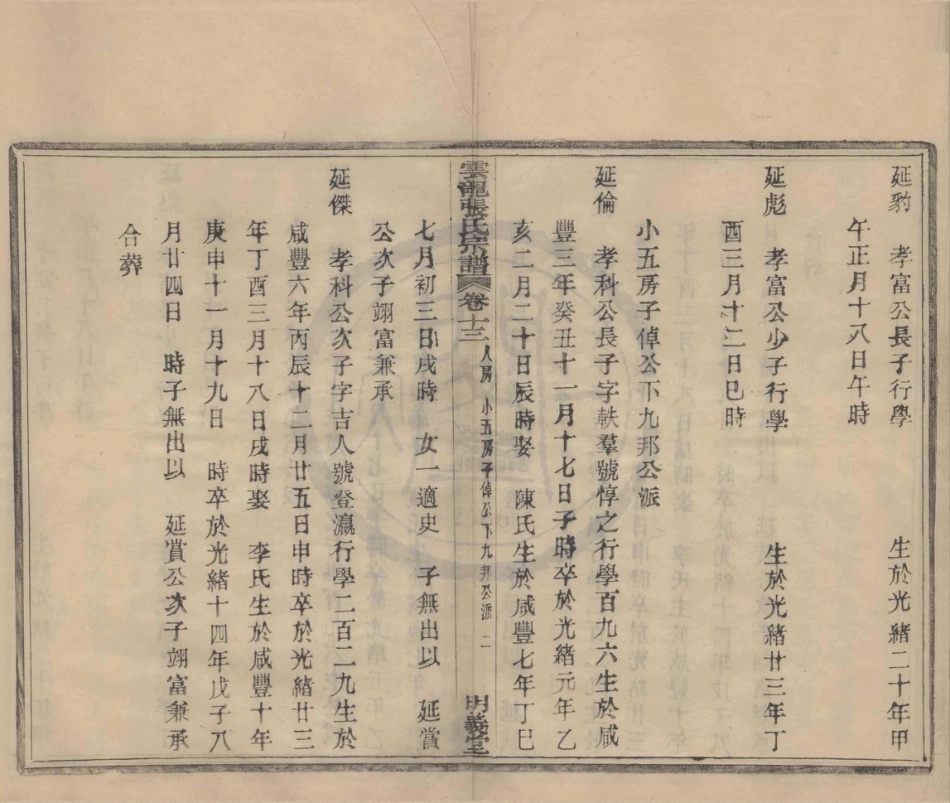 延豹　孝富公長子行學　生於光緒二十年甲
午正月十八日午時
延彪　孝富公少子行學　生於光緒廿三年丁
酉三月十二日巳時
小五房子倬公下九邦公派
延倫　孝科公長子字軼羣號惇之行學百九六生於咸
豐三年癸丑十一月十七日子時卒於光緒元年乙
亥二月二十日辰時娶　陳氏生於咸豐七年丁巳
雲龍張氏宗譜　卷十三　人房　小五房子倬公下九邦公派　二　明義堂
七月初三日戌時　女一適史　子無出以　延賞
公次子翊富兼承
延傑　孝科公次子字吉人號登瀛行學二百二九生於
咸豐六年丙辰十二月廿五日申時卒於光緒廿三
年丁酉三月十八日戌時娶　李氏生於咸豐十年
庚申十一月十九日　時卒於光緒十四年戊子八
月廿四日　時子無出以　延賞公次子翊富兼承
合葬